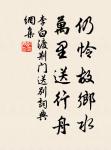 仍怜故鄉水
萬里送行舟
李白渡荆門送別詞典
網集